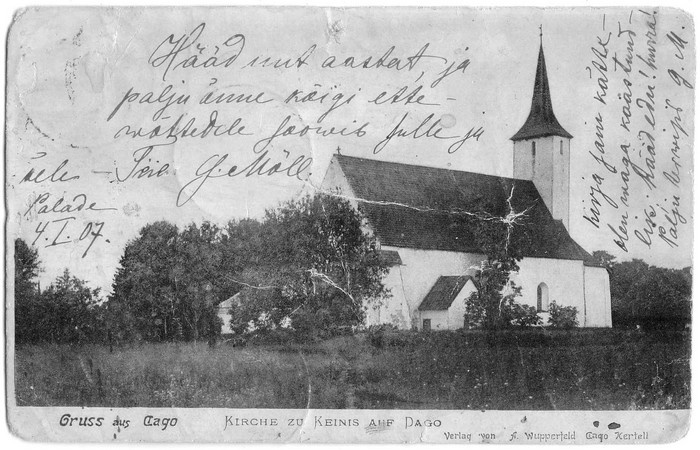 Hääd uut aastat, ja
palju õnne kõigi ette-
wõttedele soowib sulle ja
Teie G. Möll.
Palade
4. I. 07.
kirja sain kätte
olen waga
Hääd edu! hurra!
Palju terwisi G. M.
Gruss aus Dago
KIRCHE ZU KEINIS AUF DAGO
Verlag von A. Wupperfeld Dago Kertell